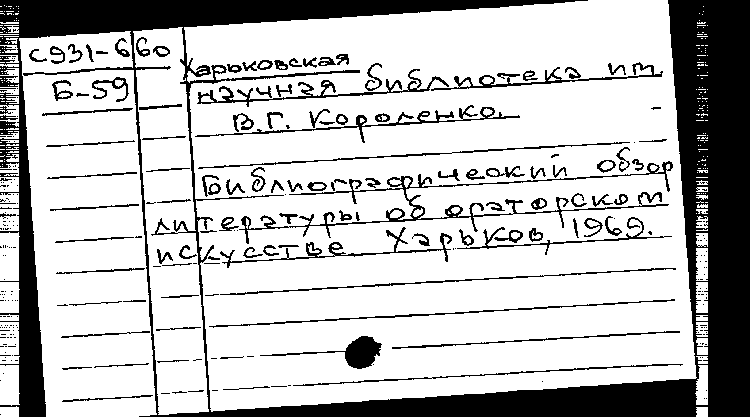 С931-660
Б-59
Харьковская
научная библиотека им.
В.Г. Короленко.
Библиографический обзор
литературы об ораторском
искусстве. Харьков, 1969.